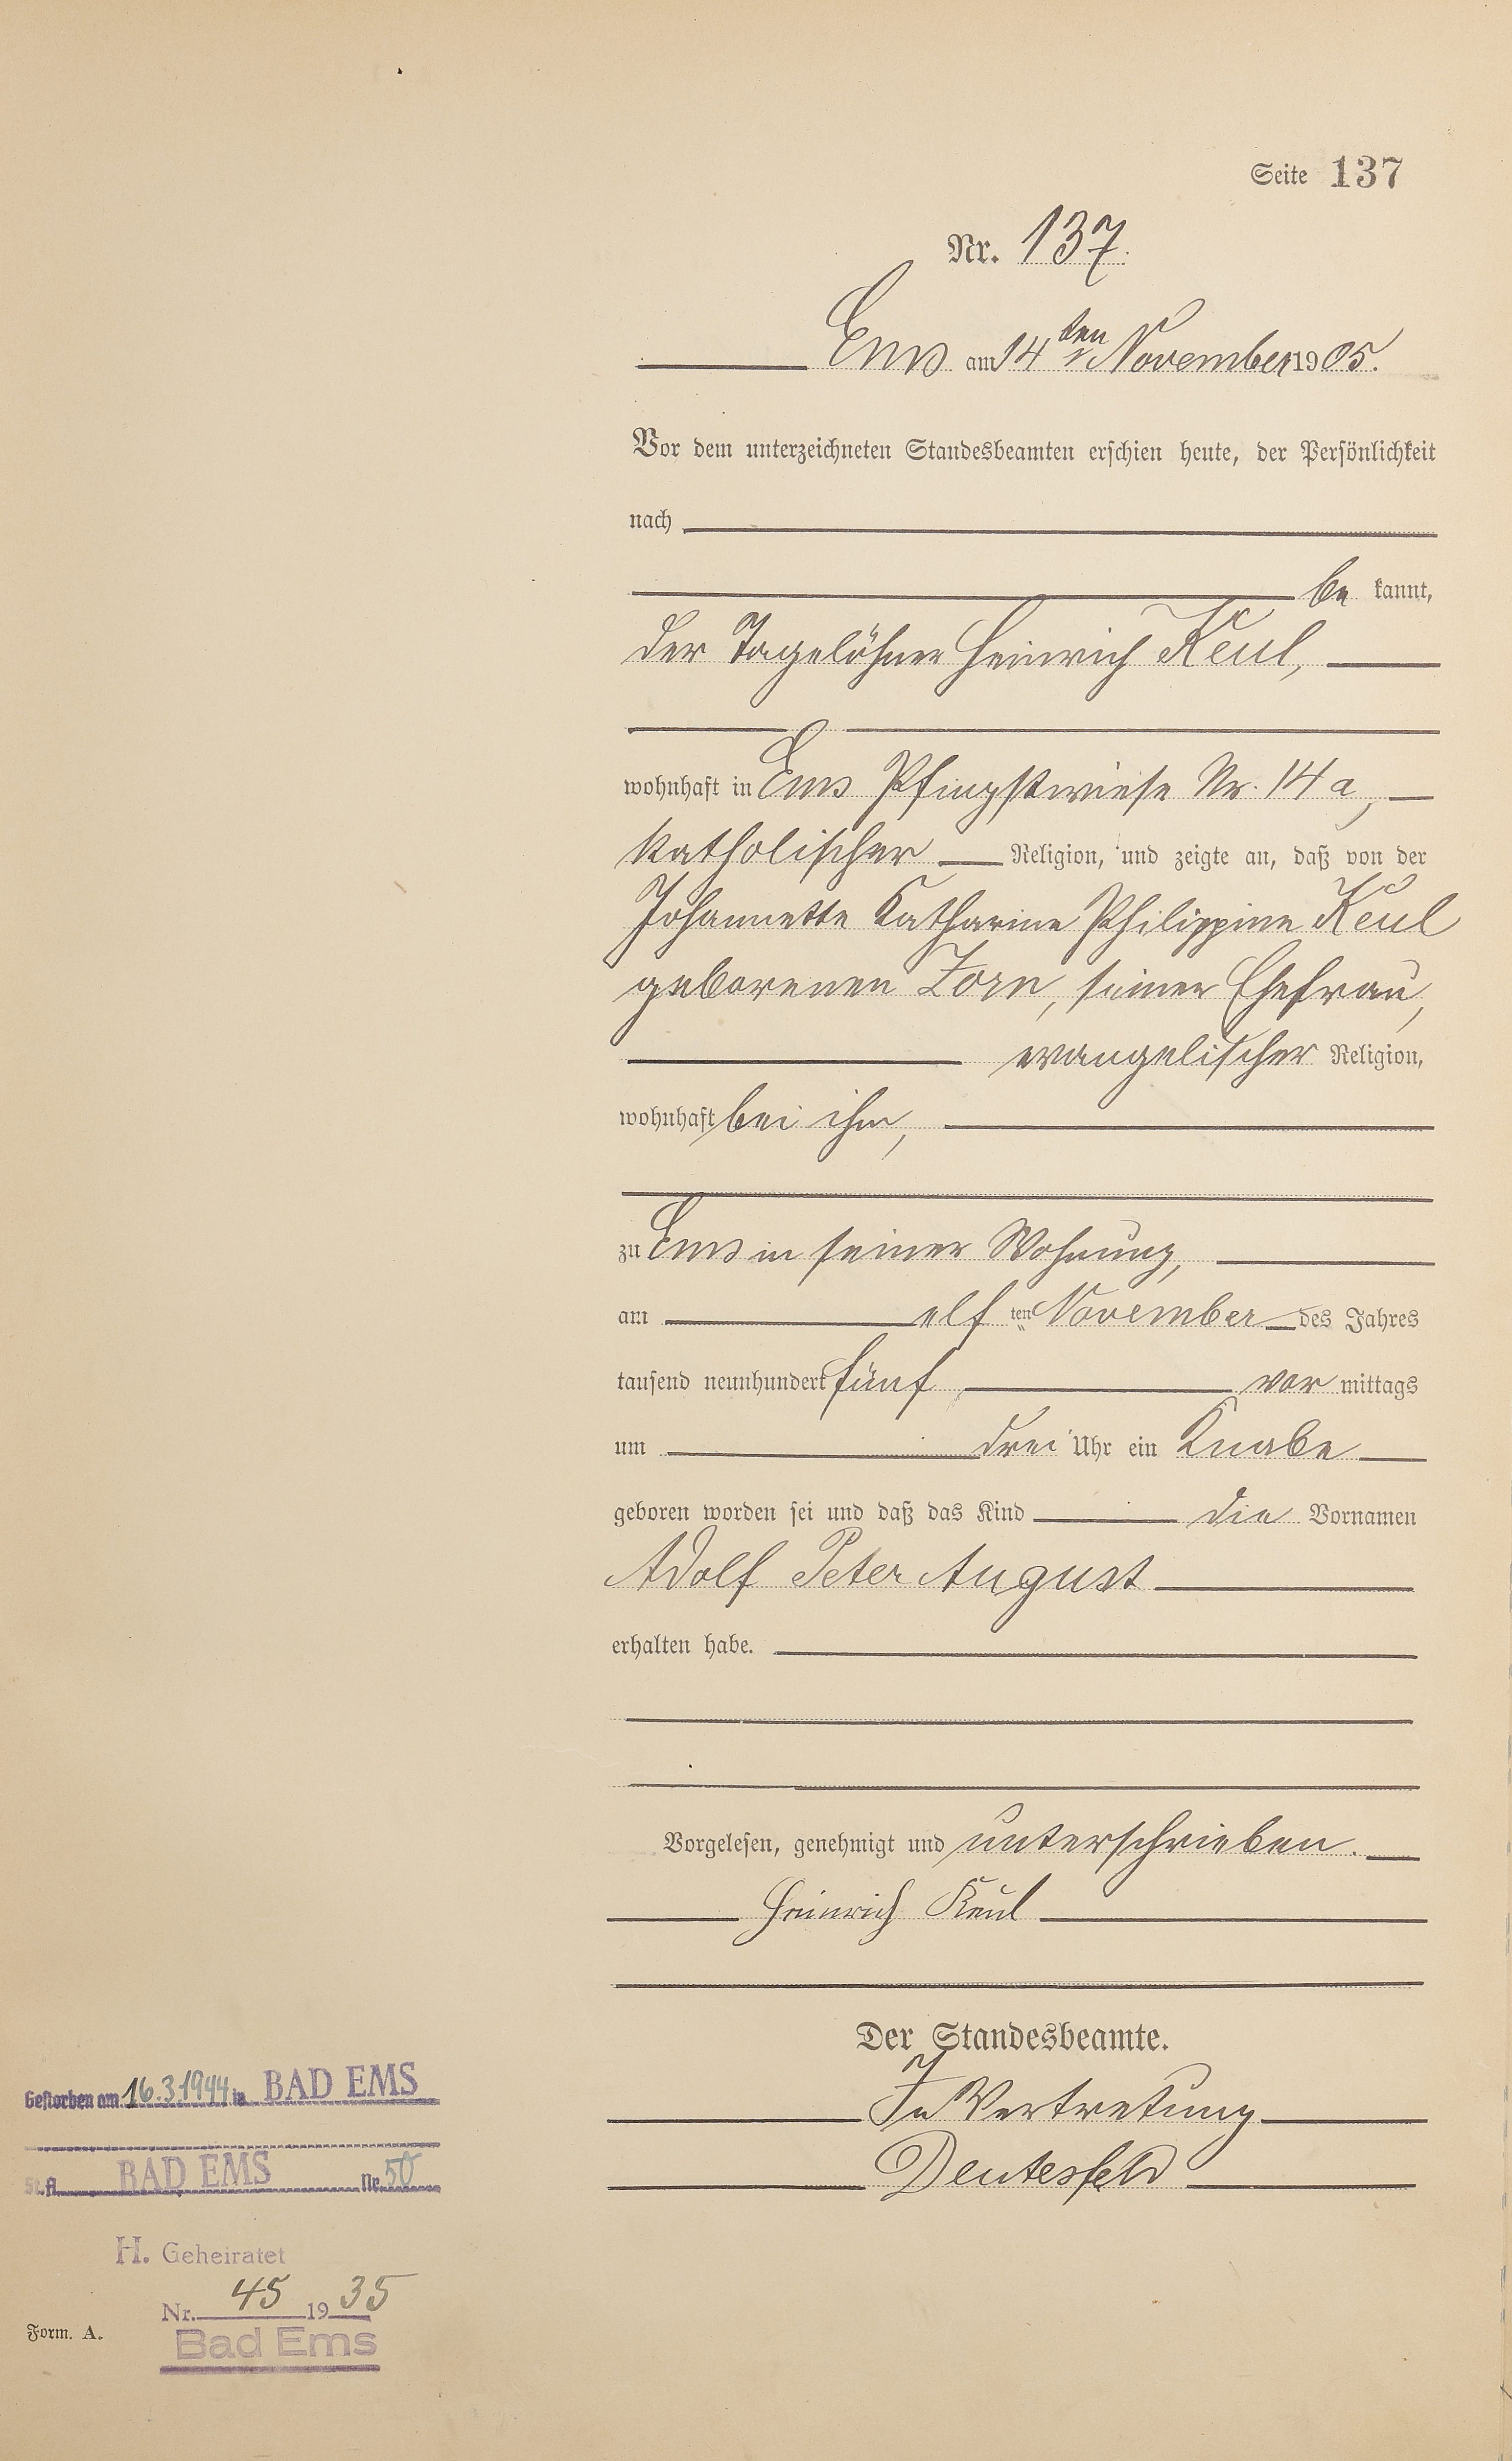 Seite 137
Nr. 137.
Ems am 14ten November 1905.
Vor dem unterzeichneten Standesbeamten erschien heute, der Persönlichkeit
nach
be kannt,
der Tagelöhner Heinrich Keul,
wohnhaft in Ems Pfingstwiese Nr. 14 a,
katholischer Religion, und zeigte an, daß von der
Johannette Katharine Philippine Keul
geborenen Zorn, seiner Ehefrau,
evangelischer Religion,
wohnhaft bei ihm,
zu Ems in seiner Wohnung,
am elf ten November des Jahres
tausend neunhundert fünf vor mittags
um drei Uhr ein Knabe
geboren worden sei und daß das Kind die Vornamen
Adolf Peter August
erhalten habe.
Vorgelesen, genehmigt und unterschrieben.
Heinrich Keul
Der Standesbeamte.
In Vertretung
Deutesfeld
Gestorben am 16.3.1944 in BAD EMS
St.A. BAD EMS Nr. 50
H. Geheiratet
Nr. 45 1935
Bad Ems
Form. A.